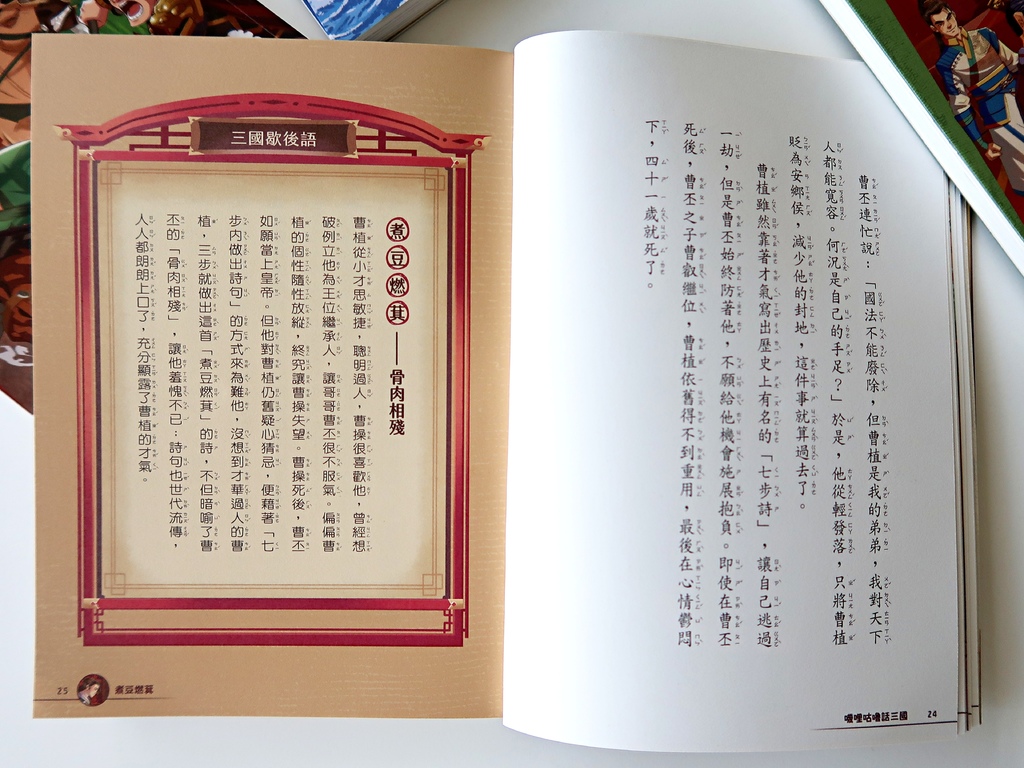 曹丕連忙說：「國法不能廢除，但曹植是我的弟弟，我對天下
人都能寬容。何況是自己的手足？」於是，他從輕發落，只將曹植
貶為安鄉侯，減少他的封地，這件事就算過去了。
曹植雖然靠著才氣寫出歷史上有名的「七步詩」，讓自己逃過
一劫，但是曹丕始終防著他，不願給他機會施展抱負。即使在曹丕
死後，曹丕之子曹叡繼位，曹植依舊得不到重用，最後在心情鬱悶
下，四十一歲就死了。
嘰哩咕嚕話三國 24
三國歇後語
煮豆燃萁——骨肉相殘
曹植從小才思敏捷，聰明過人，曹操很喜歡他，曾經想
破例立他為王位繼承人，讓哥哥曹丕很不服氣。偏偏曹
植的個性隨性放縱，終究讓曹操失望。曹操死後，曹丕
如願當上皇帝。但他對曹植仍舊疑心猜忌，便藉著「七
步內做出詩句」的方式來為難他，沒想到才華過人的曹
植，三步就做出這首「煮豆燃萁」的詩，不但暗喻了曹
丕的「骨肉相殘」，讓他羞愧不已；詩句也世代流傳，
人人都朗朗上口了，充分顯露了曹植的才氣。
25 煮豆燃萁